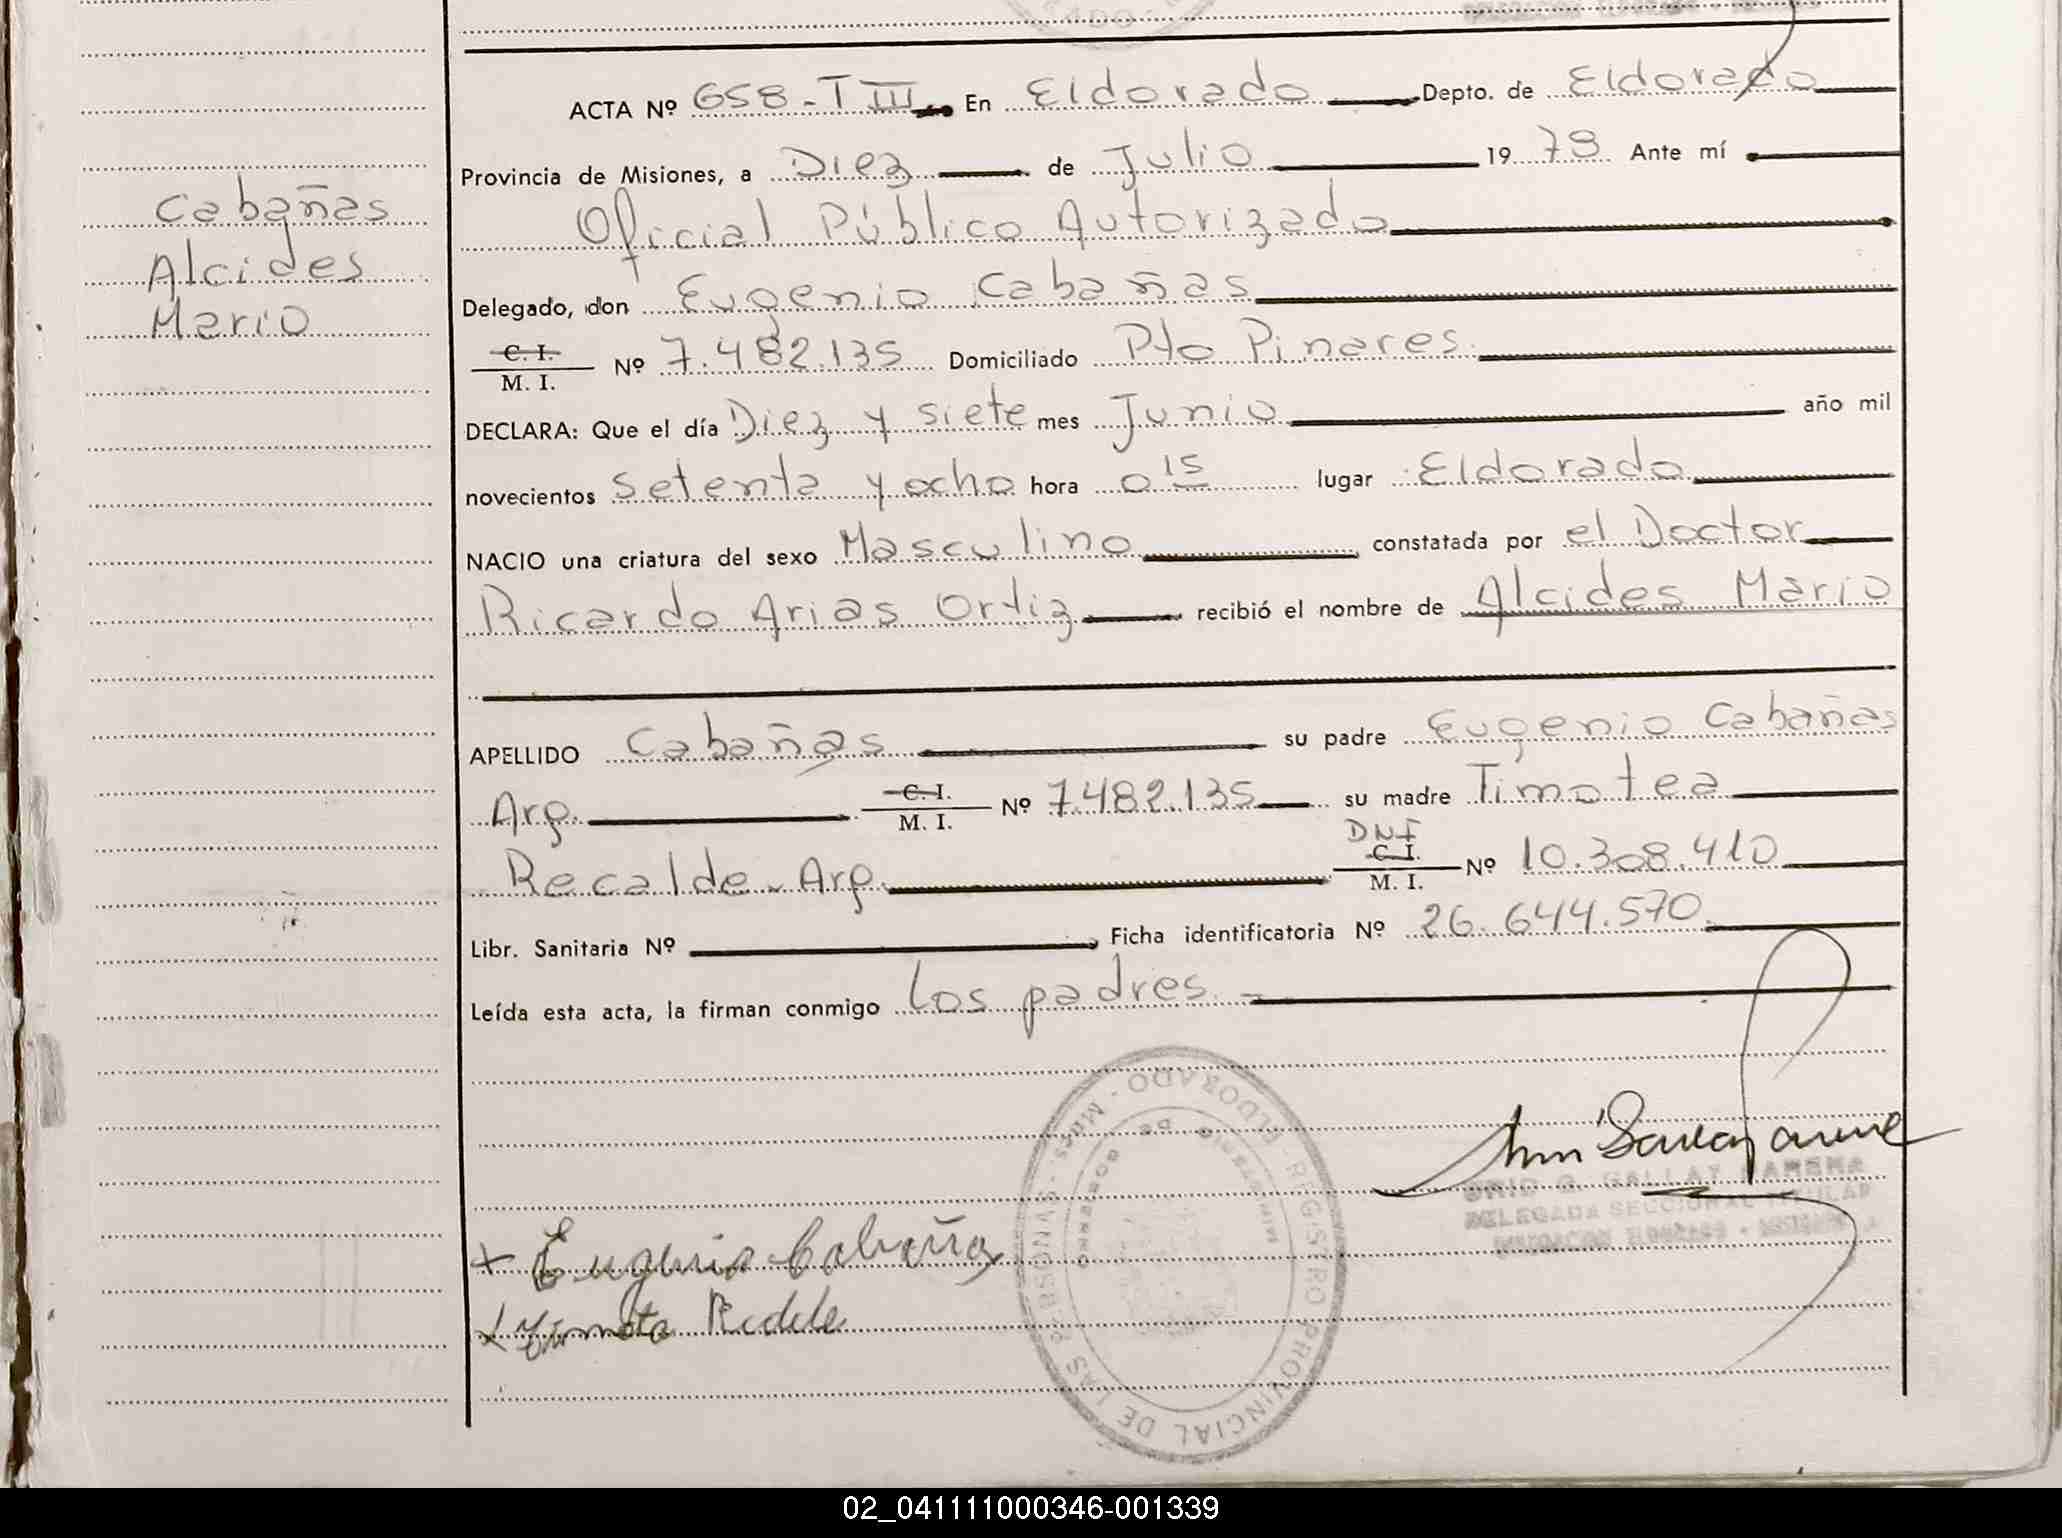 ACTA Nº 658-T III En Eldorado Depto. de Eldorado
Provincia de Misiones, a Diez de Julio 1978 Ante mí
Oficial Público Autorizado
Cabañas
Alcides
Mario
Delegado, don Eugenio Cabañas
C. I.
M. I. Nº 7.482.135 Domiciliado Pto Pinares
DECLARA: Que el día Diez y siete mes Junio año mil
novecientos setenta y ocho hora 0 15 lugar Eldorado
NACIO una criatura del sexo Masculino constatada por el Doctor
Ricardo Arias Ortiz recibió el nombre de Alcides Mario
APELLIDO Cabañas su padre Eugenio Cabañas
Arg. C. I.
M. I. Nº 7.482.135 su madre Timotea
Recalde - Arg. DNI
C. I.
M. I. Nº 10.308.410
Libr. Sanitaria Nº Ficha identificatoria Nº 26.644.570.
Leída esta acta, la firman conmigo los padres. -
REGISTRO PROVINCIAL DE LAS PERSONAS - Mnes. - ELDORADO -
MINISTERIO DE GOBIERNO
G. GALLAY
DELEGADA SECCIONAL TITULAR
+ Eugenio Cabañas
02_041111000346-001339